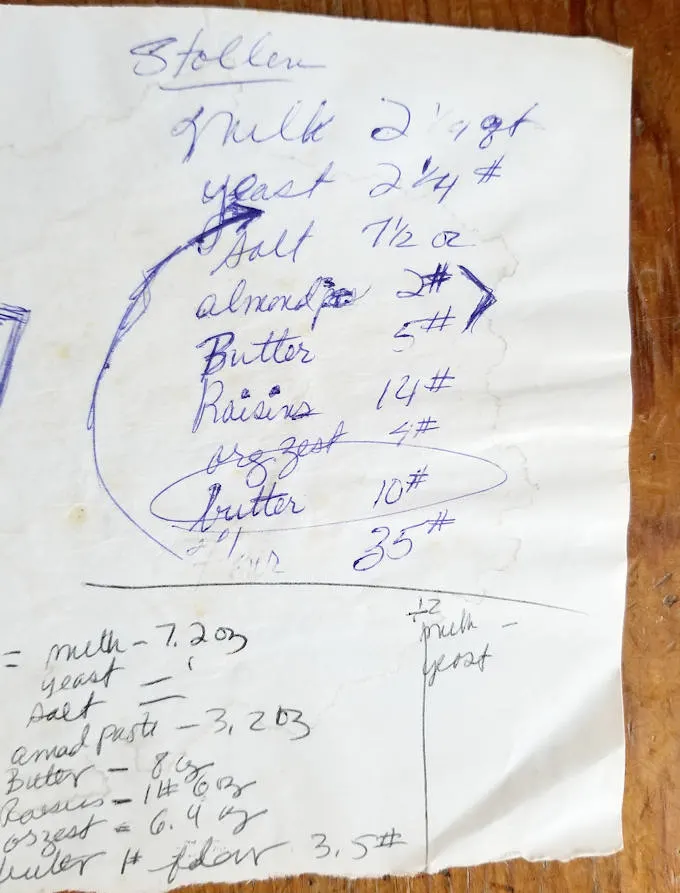 Stollen
milk 2 1/4 qt
yeast 2 1/4 #
salt 7 1/2 oz
almond 2#
Butter 5#
Raisins 14#
org. zest 4#
butter 10#
35#
= milk - 7.2 oz
yeast
salt
amad paste - 3.2 oz
Buter - 8 oz
Raisins = 1# 6 oz
orzest = 6.4 oz
buter 1# flour 3.5#
÷12
milk -
yeast